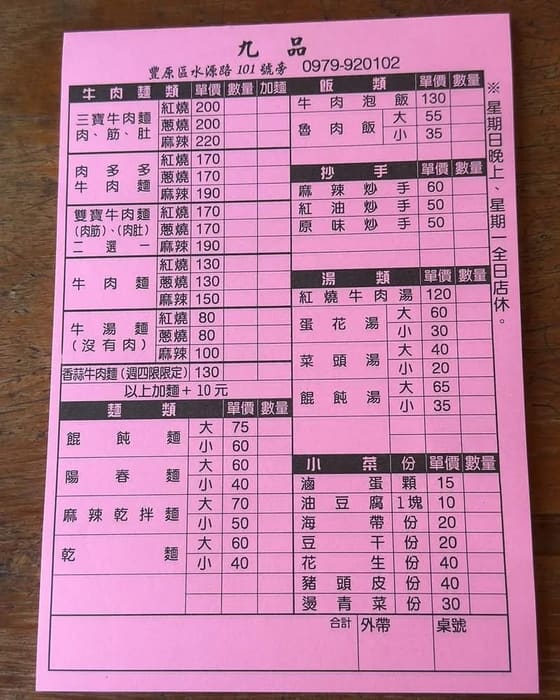 九品
豐原區水源路101號旁 0979-920102
牛肉麵類 單價 數量 加麵
三寶牛肉麵 肉、筋、肚 紅燒 200
蔥燒 200
麻辣 220
肉多多牛肉麵 紅燒 170
蔥燒 170
麻辣 190
雙寶牛肉麵 (肉筋)、(肉肚) 二選一 紅燒 170
蔥燒 170
麻辣 190
牛肉麵 紅燒 130
蔥燒 130
麻辣 150
牛湯麵 (沒有肉) 紅燒 80
蔥燒 80
麻辣 100
香蒜牛肉麵(週四限限定) 130
以上加麵+10元
麵類 單價 數量
餛飩麵 大 75
小 60
陽春麵 大 60
小 40
麻辣乾拌麵 大 70
小 50
乾麵 大 60
小 40
飯類 單價 數量
牛肉泡飯 130
魯肉飯 大 55
小 35
抄手 單價 數量
麻辣炒手 60
紅油炒手 50
原味炒手 50
湯類 單價 數量
紅燒牛肉湯 120
蛋花湯 大 60
小 30
菜頭湯 大 40
小 20
餛飩湯 大 65
小 35
小菜 份 單價 數量
滷蛋 顆 15
油豆腐 1塊 10
海帶 份 20
豆干 份 20
花生 份 40
豬頭皮 份 40
燙青菜 份 30
合計 外帶 桌號
※星期日晚上、星期一全日店休。